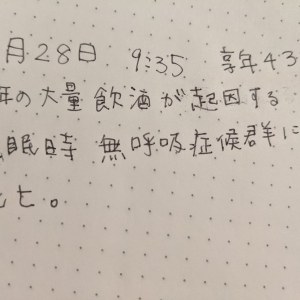 月28日 9:35 享年43
年の大量飲酒が起因する
眠時 無呼吸症候群に
亡。